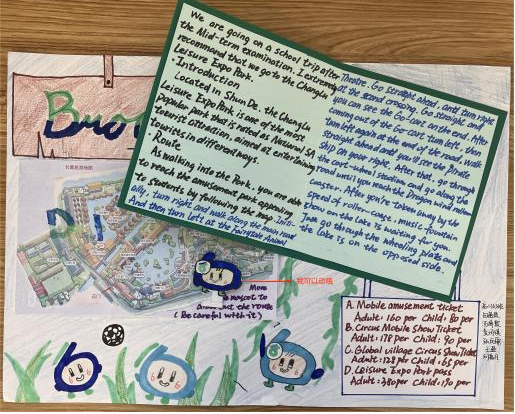 We are going on a school trip after
the Mid-term examination. I extremely
recommend that we go to the Changlu
Leisure Expo Park.
· Introduction
Located in Shun De, the Changlu
Leisure Expo Park is one of the most
popular park that is rated as Natural 5A
tourist attration, aimed at entertaining
tourists in different ways.
· Route
As walking into the Park, you are able
to reach the amusement park appealing
to students by following the map. Initi-
ally, turn right and walk along the main road
And then turn left at the Fairytale Animal
Theatre. Go straight ahead, and turn right
at the second crossing. Go straight and
you can see the Go-cart on the end. After
coming out of the Go-cart, turn left, then
turn left again at the end of the road. Walk
straight ahead and you'll see the Pirate
Ship on your right. After that, go through
the cart-wheel stadium and go along the
road until you reach the Dragon wind roller
coaster. After you're taken away by the
speed of roller-coast, music fountain
town on the lake is waiting for you.
Just go through the wheeling plate and
the lake is on the opposed side.
长鹿旅游地图
我可以动哦
Move
mascot to
the route
(Be careful with it)
A. Mobile amusement ticket
Adult: 160 per Child: 80 per
B. Circus Mobile Show Ticket
Adult: 178 per Child: 90 per
C. Global village Circus Show Ticket
Adult: 128 per Child: 65 per
D. Leisure Expo Park pass
Adult: 380 per Child: 190 per